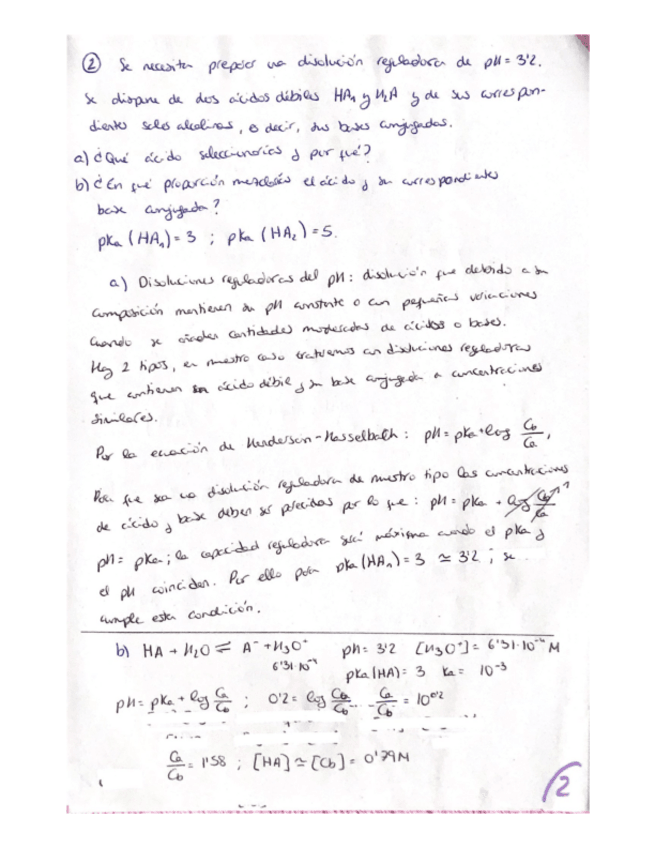 ② Se necesita preparar una disolución reguladora de pH = 3'2.
Se dispone de dos ácidos débiles HA₁ y H₂A y de sus correspon-
dientes sales alcalinas, es decir, sus bases conjugadas.
a) ¿Qué ácido seleccionarías y por qué?
b) ¿En qué proporción mezclarías el ácido y su correspondiente
base conjugada?
pKa (HA₁) = 3 ; pKa (HA₂) = 5.
a) Disoluciones reguladoras del pH: disolución que debido a su
composición mantienen su pH constante o con pequeñas variaciones
cuando se añaden cantidades moderadas de ácidos o bases.
Hay 2 tipos, en nuestro caso trataremos con disoluciones reguladoras
que contienen un ácido débil y su base conjugada a concentraciones
similares.
Por la ecuación de Henderson-Hasselbalch: pH = pKa + log Cb/Ca,
Para que sea una disolución reguladora de nuestro tipo las concentraciones
de ácido y base deben ser parecidas por lo que: pH = pKa + log Cb/Ca ↗1
pH = pKa; la capacidad reguladora será máxima cuando el pKa y
el pH coinciden. Por ello para pKa (HA₁) = 3 ≃ 3'2 ; se
cumple esta condición.
b) HA + H₂O ⇌ A⁻ + H₃O⁺ pH = 3'2 [H₃O⁺] = 6'31·10⁻⁴ M
6'31·10⁻⁴ pKa (HA) = 3 Ka = 10⁻³
pH = pKa + log Ca/Cb ; 0'2 = log Ca/Cb Ca/Cb = 10^0'2
Ca/Cb = 1'58 ; [HA] ≃ [Cb] = 0'79 M
2